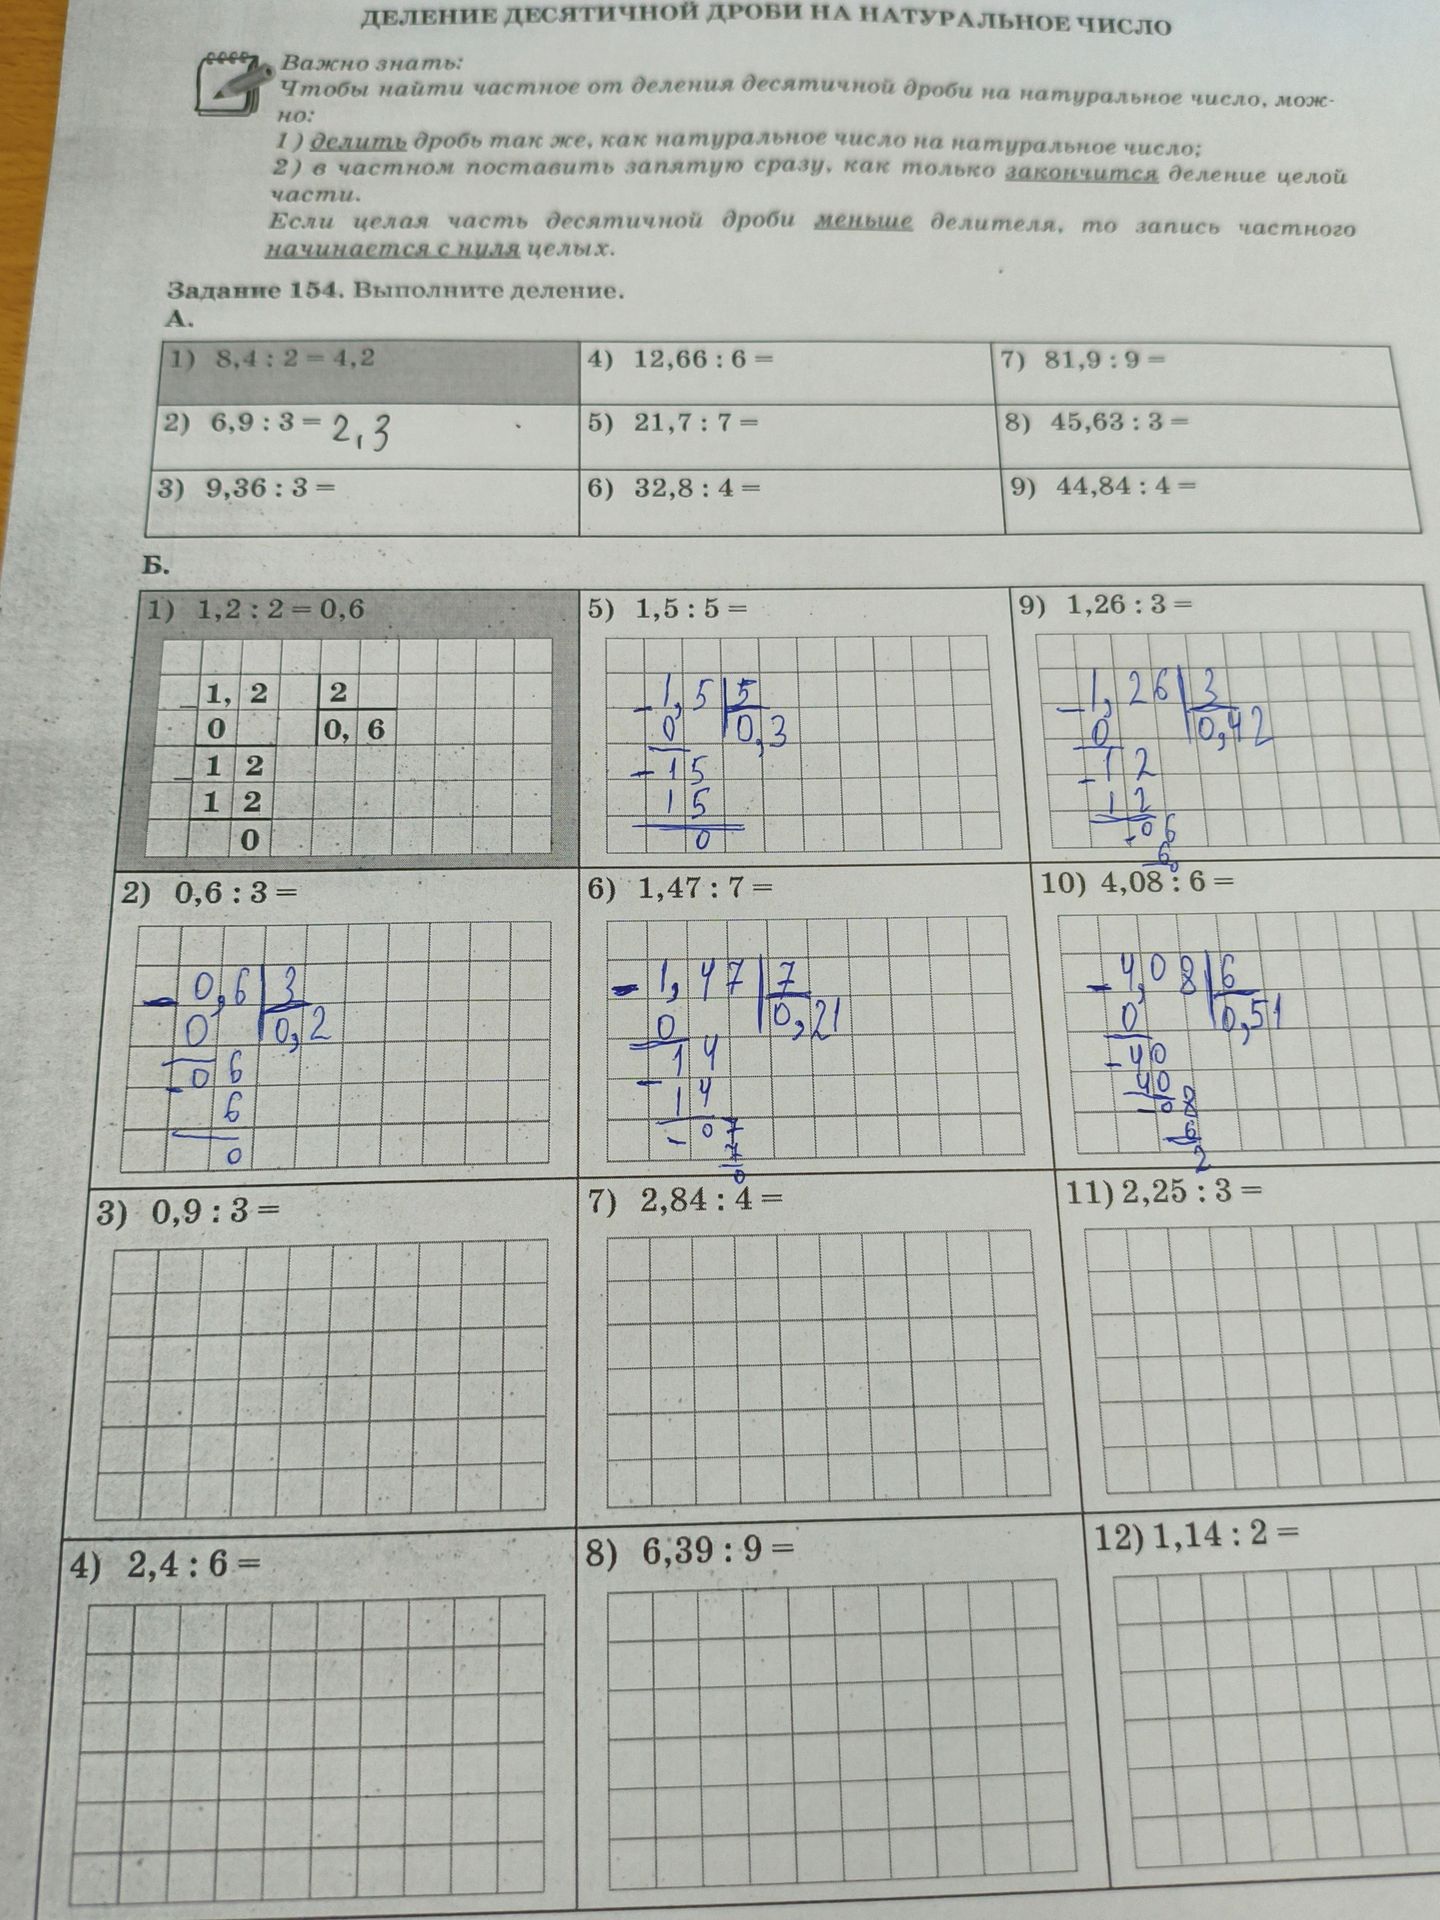 ДЕЛЕНИЕ ДЕСЯТИЧНОЙ ДРОБИ НА НАТУРАЛЬНОЕ ЧИСЛО
Важно знать:
Чтобы найти частное от деления десятичной дроби на натуральное число, мож-
но:
1) делить дробь так же, как натуральное число на натуральное число;
2) в частном поставить запятую сразу, как только закончится деление целой
части.
Если целая часть десятичной дроби меньше делителя, то запись частного
начинается с нуля целых.
Задание 154. Выполните деление.
А.
1) 8,4 : 2 = 4,2
4) 12,66 : 6 =
7) 81,9 : 9 =
2) 6,9 : 3 = 2,3
5) 21,7 : 7 =
8) 45,63 : 3 =
3) 9,36 : 3 =
6) 32,8 : 4 =
9) 44,84 : 4 =
Б.
1) 1,2 : 2 = 0,6
1,2 2
0 0,6
12
12
0
5) 1,5 : 5 =
1,5 5
0 0,3
15
15
0
9) 1,26 : 3 =
1,26 3
0 0,42
12
12
06
6
0
2) 0,6 : 3 =
0,6 3
0 0,2
06
6
0
6) 1,47 : 7 =
1,47 7
0 0,21
14
14
07
7
0
10) 4,08 : 6 =
4,08 6
0 0,51
40
40
08
6
2
3) 0,9 : 3 =
7) 2,84 : 4 =
11) 2,25 : 3 =
4) 2,4 : 6 =
8) 6,39 : 9 =
12) 1,14 : 2 =